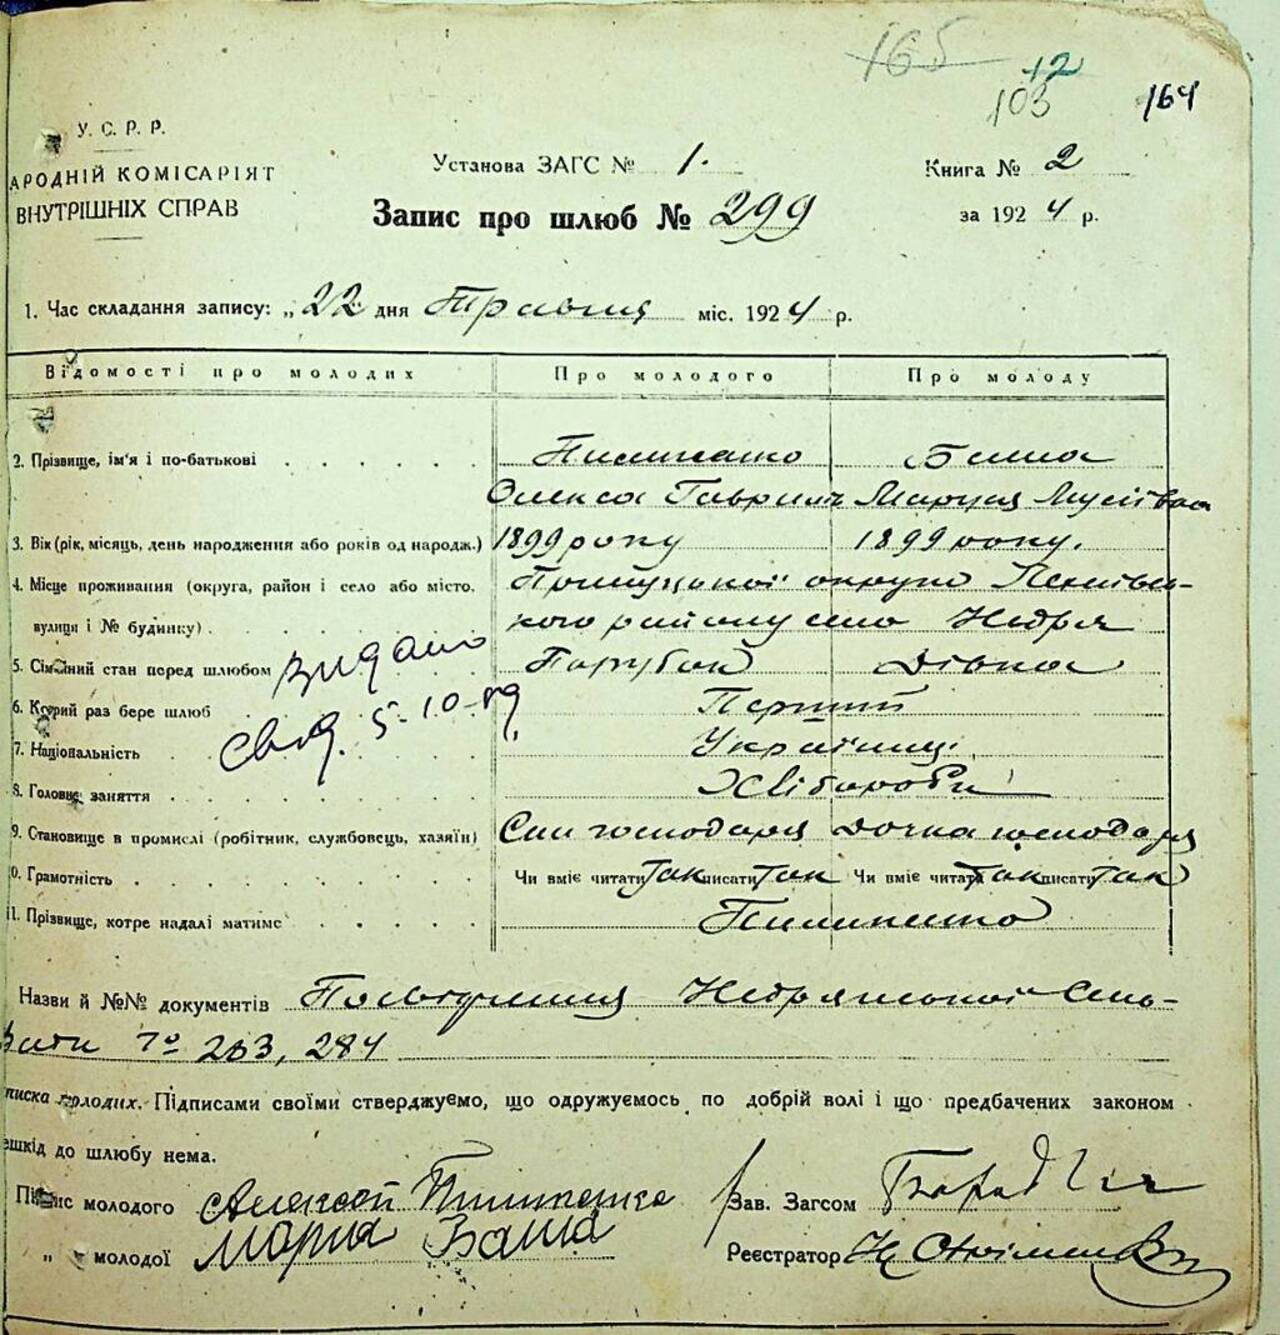 165
12
103
164
У. С. Р. Р.
АРОДНІЙ КОМІСАРІЯТ
ВНУТРІШНІХ СПРАВ
Установа ЗАГС № 1.
Книга № 2
Запис про шлюб № 299
за 1924 р.
1. Час складання запису: „22 дня Травня міс. 1924 р.
Відомості про молодих Про молодого Про молоду
2. Прізвище, ім'я і по-батькові
Олекса Гаврил. Маруся Мусіївна
3. Вік (рік, місяць, день народження або років од народж.) 1899 року 1899 року.
4. Місце проживання (округа, район і село або місто, Прилуцької округи
вулиця і № будинку) кого району село Недра
5. Сімейний стан перед шлюбом Парубок Дівка
6. Котрий раз бере шлюб Перший
7. Національність Українці
8. Головне заняття Хлібороби
видано
свид. 5-10-49
9. Становище в промислі (робітник, службовець, хазяїн) Син господаря Дочка господаря
0. Грамотність Чи вміє читати Так писати Так Чи вміє читати Так писати Так
11. Прізвище, котре надалі матиме
Назви й №№ документів Посвідчення Недрянської Сіль-
ради № 283, 284
писка молодих. Підписами своїми стверджуємо, що одружуємось по добрій волі і що предбачених законом
ешкід до шлюбу нема.
Підпис молодого Алексей
Зав. Загсом
„ молодої Мария
Реєстратор